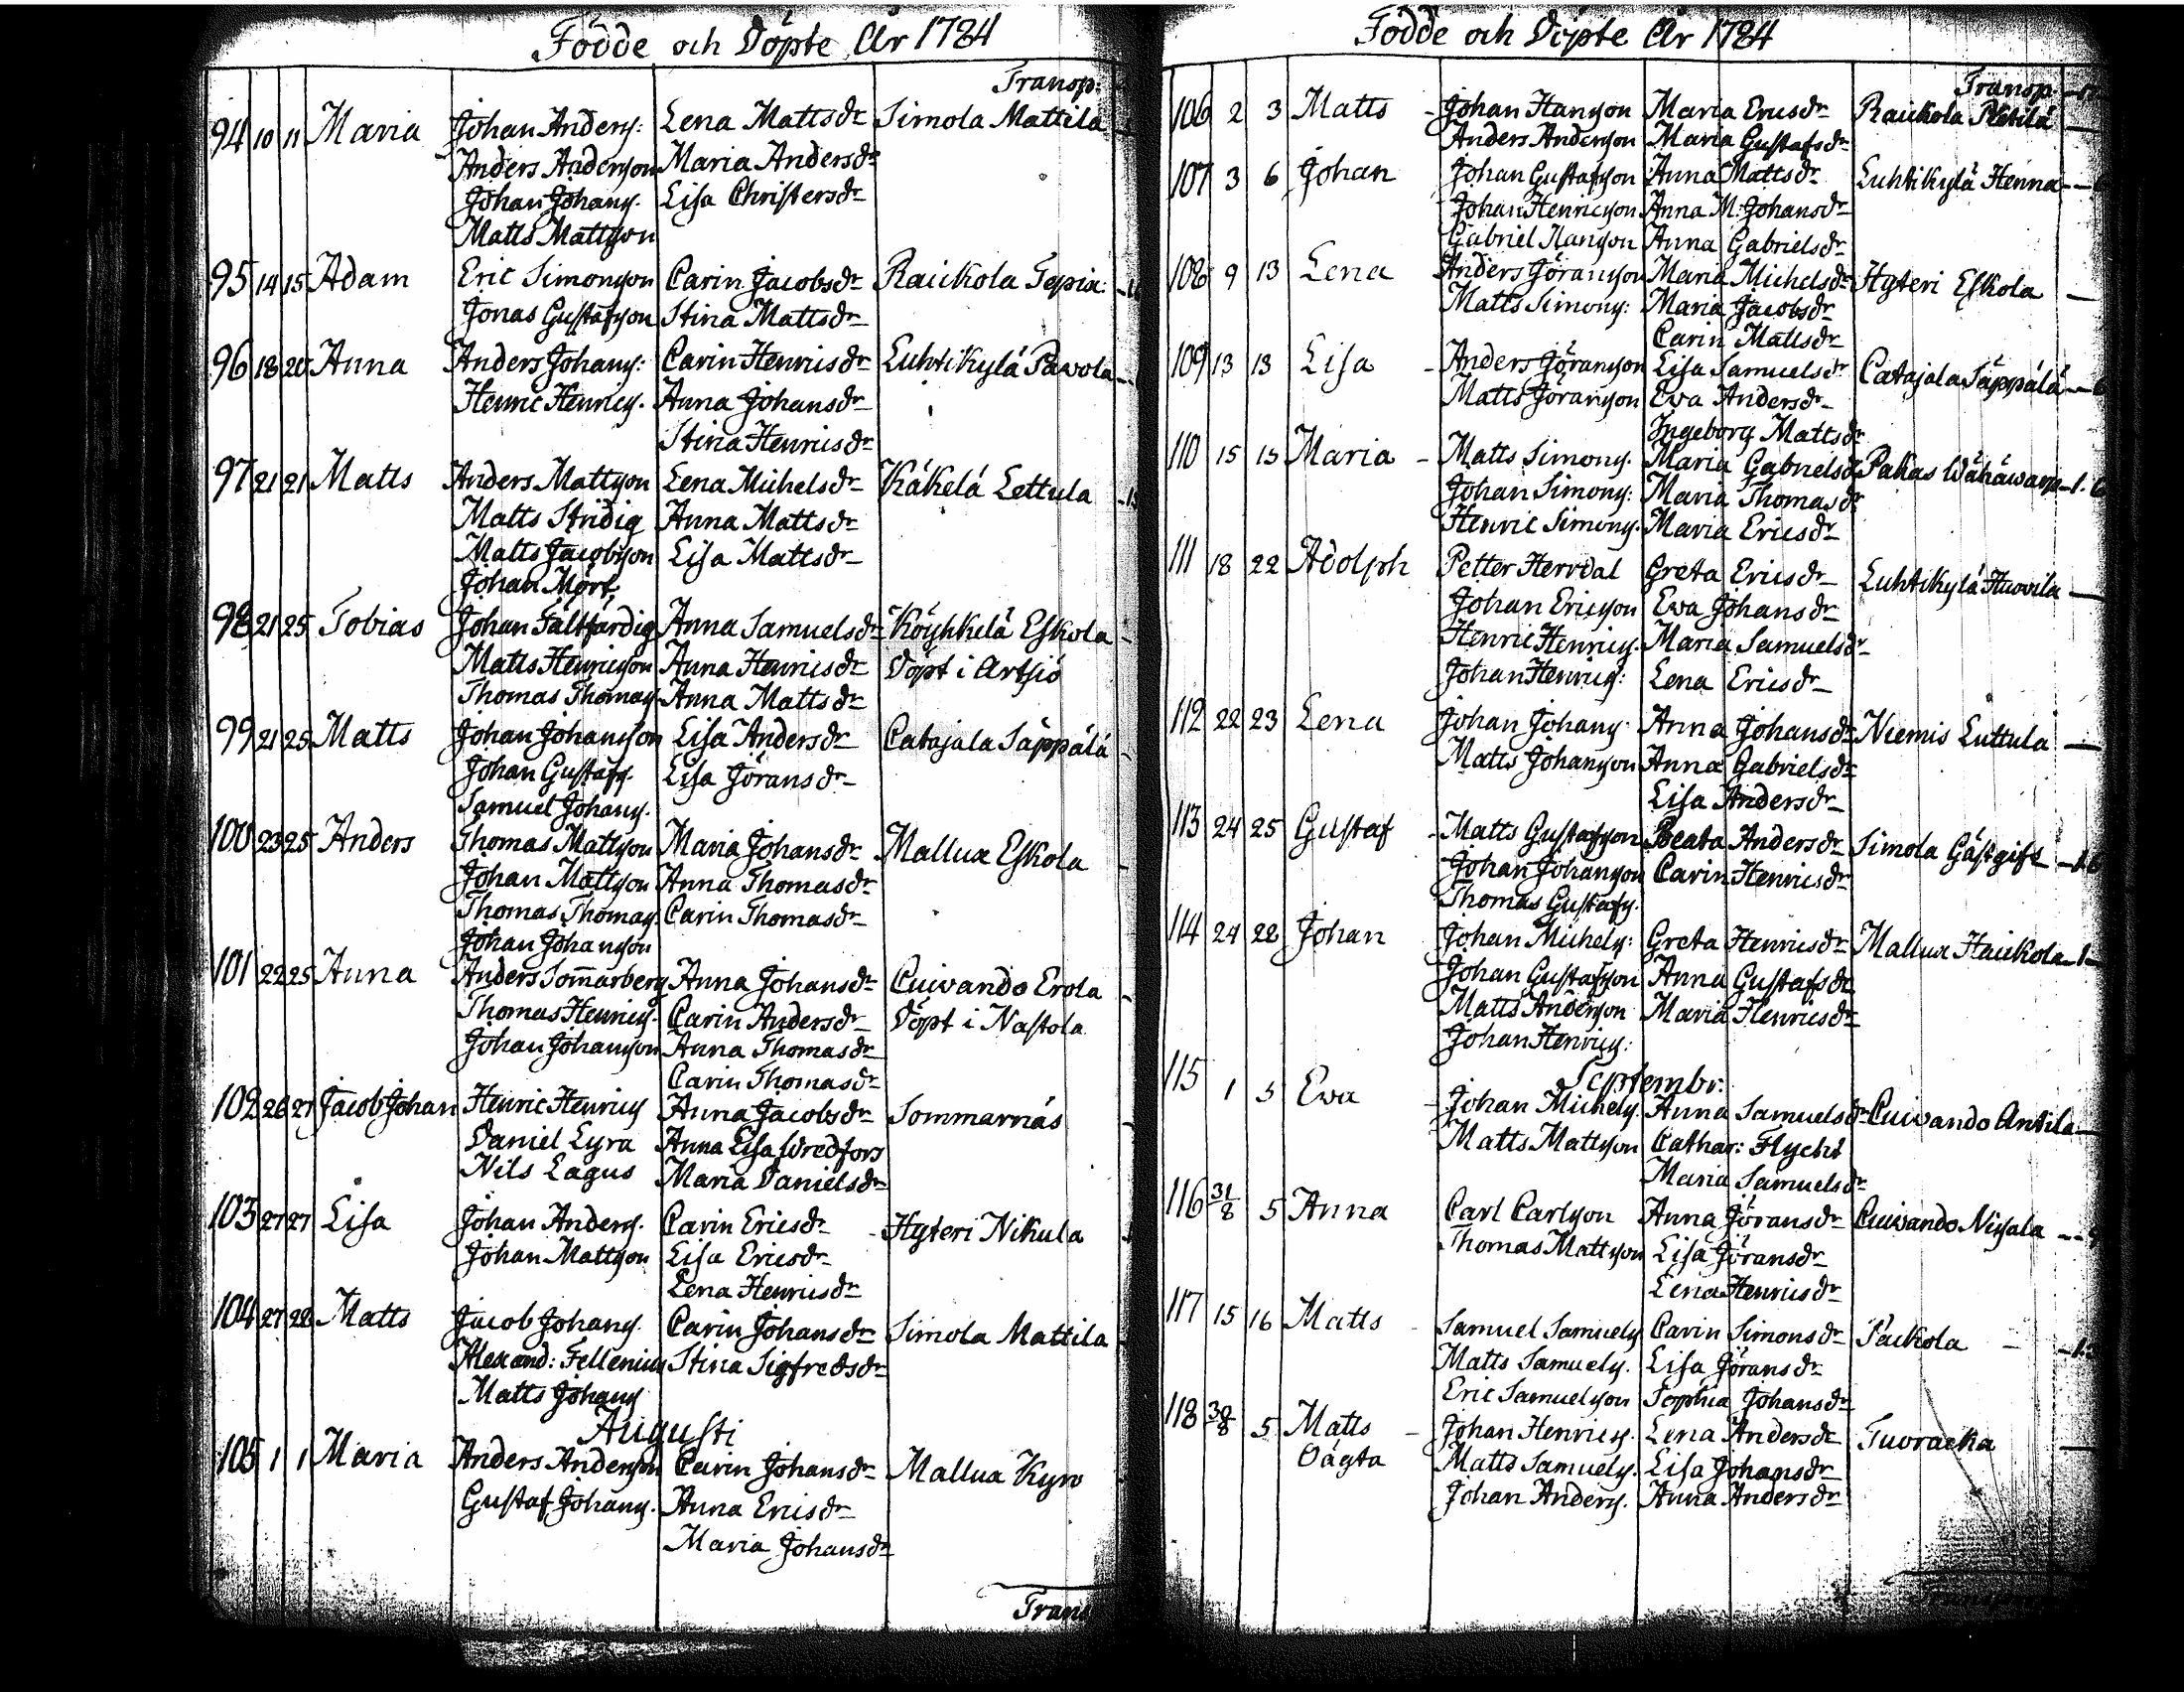 Födde och Döpte År 1784
Transp:
94 10 11 Maria Johan Anders: Lena Mattsdr Simola Mattila
Anders Andersson Maria Andersdr
Johan Johans. Lisa Christersdr
Matts Mattsson
95 14 15 Adam Eric Simonsson Carin Jacobsdr Raickola Sepia:
Jonas Gustafsson Stina Mattsdr
96 18 20 Anna Anders Johans: Carin Henricsdr Luhtikylä Pavola
Henric Henrics. Anna Johansdr
Stina Henricsdr
97 21 21 Matts Anders Mattsson Lena Michelsdr Käkelä Lettula
Matts Stridig Anna Mattsdr
Matts Jacobsson Lisa Mattsdr
Johan Mört
98 21 25 Tobias Johan Fältfärdig Anna Samuelsdr Köyhkelä Eskola
Matts Henricsson Anna Henricsdr Döpt i Artsjö
Thomas Thomas. Anna Mattsdr
99 21 25 Matts Johan Johansson Lisa Andersdr Catajala Säppälä
Johan Gustafs. Lisa Jöransdr
Samuel Johans.
100 23 25 Anders Thomas Mattsson Maria Johansdr Mallux Eskola
Johan Mattsson Anna Thomasdr
Thomas Thomas. Carin Thomasdr
Johan Johansson
101 22 25 Anna Anders Som̄arberg Anna Johansdr Cuivando Erola
Thomas Henrics. Carin Andersdr Döpt i Nastola
Johan Johansson Anna Thomasdr
Carin Thomasdr
102 26 27 Jacob Johan Henric Henrics Anna Jacobsdr Sommarnäs
Daniel Lyra Anna Lisa Wredfors
Nils Lagus Maria Danielsdr
103 27 27 Lisa Johan Anders. Carin Ericsdr Hyteri Nikula
Johan Mattsson Lisa Ericsdr
Lena Henricsdr
104 27 28 Matts Jacob Johans. Carin Johansdr Simola Mattila
Alexand: Fellenius Stina Sigfredsdr
Matts Johans
Augusti
105 1 1 Maria Anders Andersson Carin Johansdr Mallux Kyrö
Gustaf Johans. Anna Ericsdr
Maria Johansdr
Trans
Födde och Döpte År 1784
Transp
106 2 3 Matts Johan Hansson Maria Ericsdr Raickola
Anders Andersson Maria Gustafsdr
107 3 6 Johan Johan Gustafsson Anna Mattsdr Luhtikylä Henna
Johan Henricsson Anna M: Johansdr
Gabriel Hansson Anna Gabrielsdr
108 9 13 Lena Anders Göransson Maria Michelsdr Hyteri Eskola
Matts Simons: Maria Jacobsdr
Carin Mattsdr
109 13 13 Lisa Anders Göransson Lisa Samuelsdr Catajala Säppälä
Matts Göransson Ewa Andersdr
Ingeborg Mattsdr
110 15 15 Maria Matts Simons. Maria Gabrielsdr Pakas
Johan Simons: Maria Thomasdr
Henric Simons. Maria Ericsdr
111 18 22 Adolph Petter Herrdal Greta Ericsdr Luhtikylä Huovila
Johan Ericsson Ewa Johansdr
Henric Henrics. Maria Samuelsdr
Johan Henrics: Lena Ericsdr
112 22 23 Lena Johan Johans: Anna Johansdr Niemis Luttula
Matts Johansson Anna Gabrielsdr
Lisa Andersdr
113 24 25 Gustaf Matts Gustafsson Beata Andersdr Simola Gästgift
Johan Johansson Carin Henricsdr
Thomas Gustafs.
114 24 28 Johan Johan Michels: Greta Henricsdr Mallux Haickola
Johan Gustafsson Anna Gustafsdr
Matts Andersson Maria Henricsdr
Johan Henrics:
Septembr:
115 1 5 Ewa Johan Michels. Anna Samuelsdr Cuivando Antila
Matts Mattsson Cathar: Flycht
Maria Samuelsdr
116 31/8 5 Anna Carl Carlsson Anna Jöransdr Cuivando
Thomas Mattsson Lisa Jöransdr
Lena Henricsdr
117 15 16 Matts Samuel Samuels Carin Simonsdr Päckola
Matts Samuels. Lisa Jöransdr
Eric Samuelsson Sophia Johansdr
118 5 Matts Johan Henrics. Lena Andersdr
Oägta Matts Samuels. Lisa Johansdr
Johan Anders. Anna Andersdr